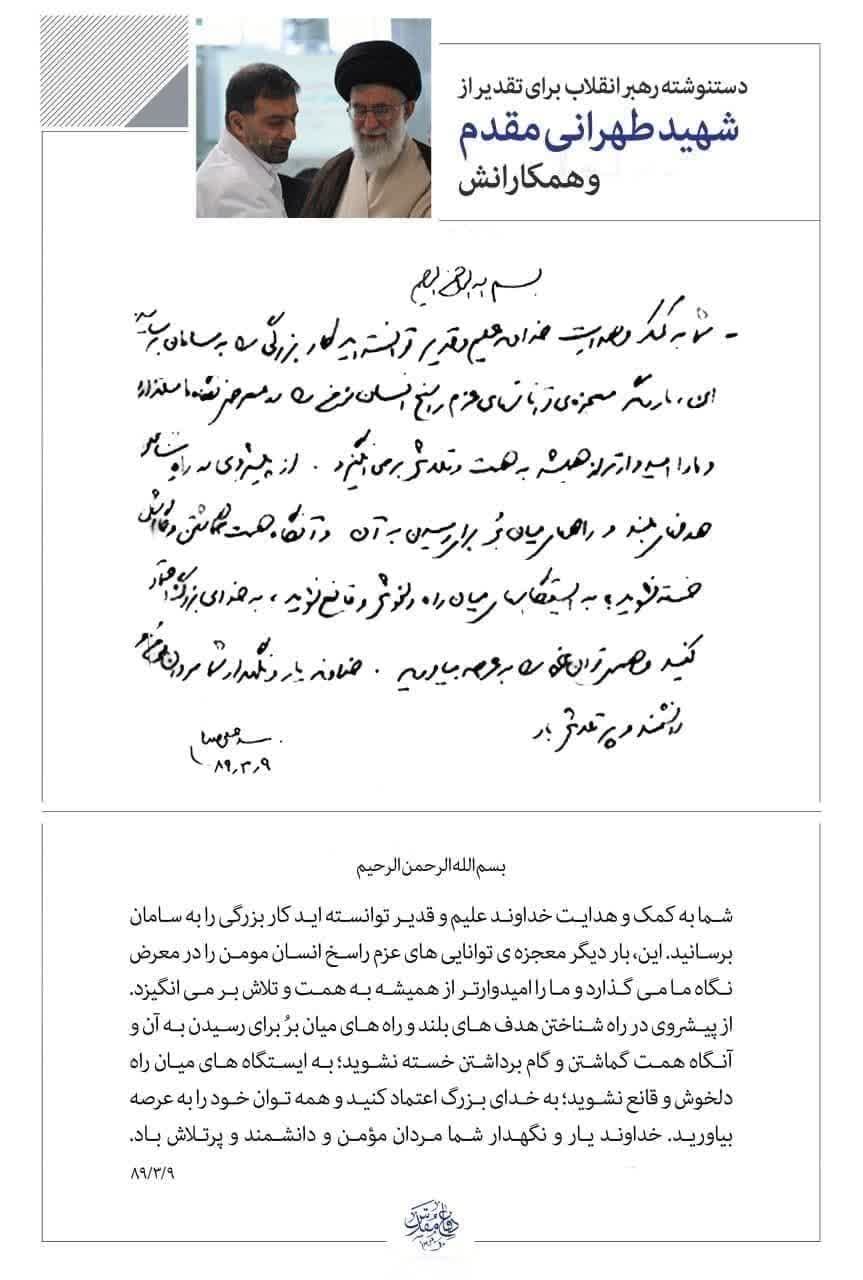 دستنوشته رهبر انقلاب برای تقدیر از
شهید طهرانی مقدم
و همکارانش
بسم الله الرحمن الرحیم
- شما به کمک و هدایت خداوند علیم و قدیر توانسته اید کار بزرگی را به سامان برسانید
این، بار دیگر معجزه‌ی توانائی‌های عزم راسخ انسان مؤمن را در معرض نگاه ما میگذارد
و ما را امیدوارتر از همیشه به همت و تلاش برمی‌انگیزد. از پیشروی در راه شناختن
هدفهای بلند و راههای میان بُر برای رسیدن به آن و آنگاه همت گماشتن و گام برداشتن
خسته نشوید؛ به ایستگاههای میان راه دلخوش و قانع نشوید، به خدای بزرگ اعتماد
کنید و همه‌ی توان خود را به عرصه بیاورید. خداوند یار و نگهدار شما مردان مؤمن و
دانشمند و پرتلاش باد
سید علی خامنه‌ای
۸۹٫۳٫۹
بسم الله الرحمن الرحیم
شما به کمک و هدایت خداوند علیم و قدیر توانسته اید کار بزرگی را به سامان
برسانید. این، بار دیگر معجزه ی توانایی های عزم راسخ انسان مومن را در معرض
نگاه ما می گذارد و ما را امیدوارتر از همیشه به همت و تلاش بر می انگیزد.
از پیشروی در راه شناختن هدف های بلند و راه های میان بُر برای رسیدن به آن و
آنگاه همت گماشتن و گام برداشتن خسته نشوید؛ به ایستگاه های میان راه
دلخوش و قانع نشوید؛ به خدای بزرگ اعتماد کنید و همه توان خود را به عرصه
بیاورید. خداوند یار و نگهدار شما مردان مؤمن و دانشمند و پرتلاش باد.
۸۹/۳/۹
دفاع مقدس